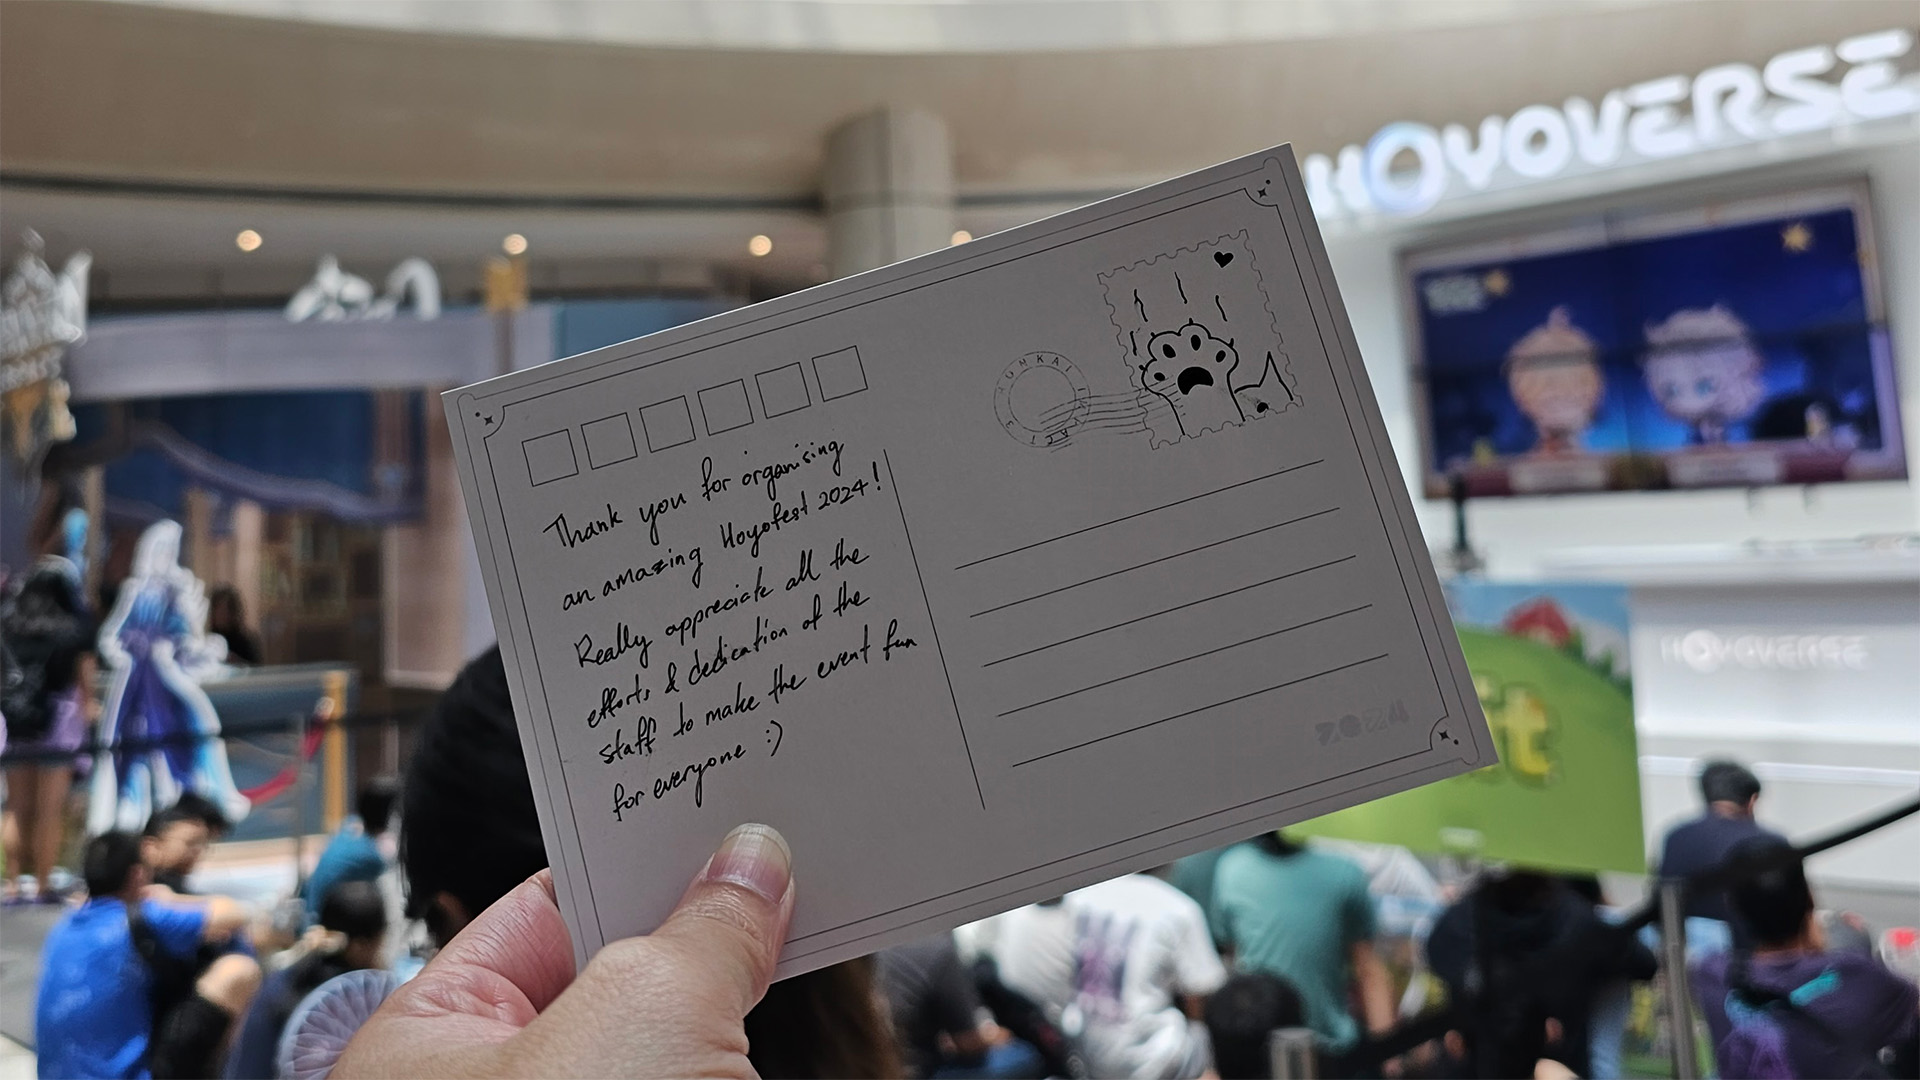 HOYOVERSE
Thank you for organising
an amazing Hoyofest 2024!
Really appreciate all the
efforts & dedication of the
staff to make the event fun
for everyone :)
HOYOVERSE
2024